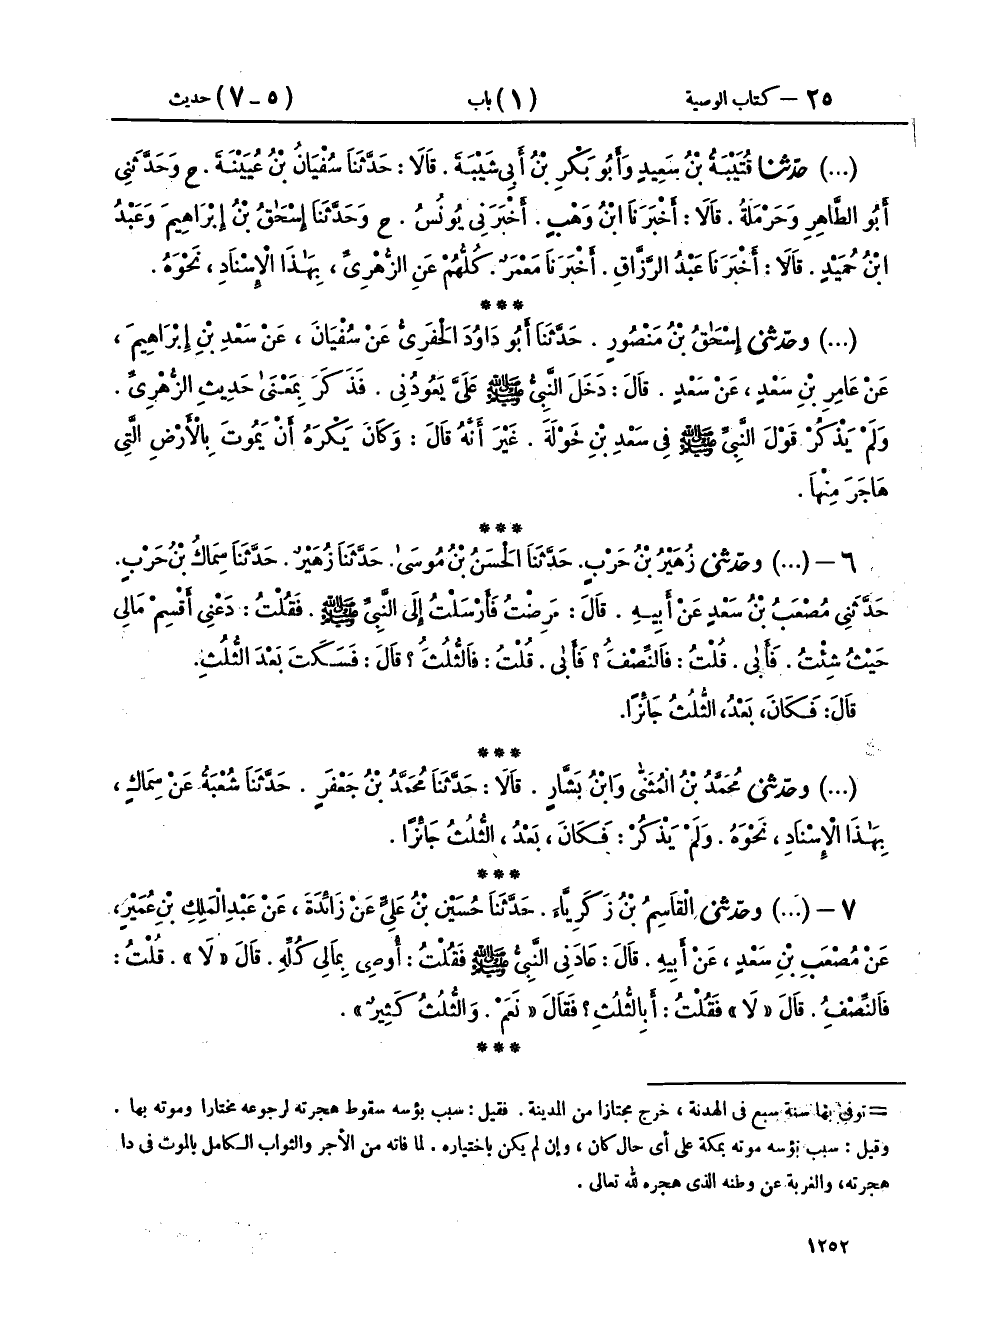 ٢٥ – كتاب الوصية (١) باب (٥ – ٧) حديث
(...) حدّثنا قُتَيْبَةُ بْنُ سَعِيدٍ وَأَبُو بَكْرِ بْنُ أَبِي شَيْبَةَ . قَالَا : حَدَّثَنَا سُفْيَانُ بْنُ عُيَيْنَةَ . ح وَحَدَّثَنِي
أَبُو الطَّاهِرِ وَحَرْمَلَةُ . قَالَا : أَخْبَرَنَا ابْنُ وَهْبٍ . أَخْبَرَنِي يُونُسُ . ح وَحَدَّثَنَا إِسْحَٰقُ بْنُ إِبْرَاهِيمَ وَعَبْدُ
ابْنُ حُمَيْدٍ . قَالَا : أَخْبَرَنَا عَبْدُ الرَّزَّاقِ . أَخْبَرَنَا مَعْمَرٌ . كُلُّهُمْ عَنِ الزُّهْرِىِّ ، بِهَٰذَا الْإِسْنَادِ ، نَحْوَهُ .
***
(...) وحدّثنى إِسْحَٰقُ بْنُ مَنْصُورٍ . حَدَّثَنَا أَبُو دَاوُدَ الْحَفَرِىُّ عَنْ سُفْيَانَ ، عَنْ سَعْدِ بْنِ إِبْرَاهِيمَ ،
عَنْ عَامِرِ بْنِ سَعْدٍ ، عَنْ سَعْدٍ . قَالَ : دَخَلَ النَّبِىُّ ﷺ عَلَىَّ يَعُودُنِى . فَذَكَرَ بِمَعْنَىٰ حَدِيثِ الزُّهْرِىِّ .
وَلَمْ يَذْكُرْ قَوْلَ النَّبِىِّ ﷺ فِى سَعْدِ بْنِ خَوْلَةَ . غَيْرَ أَنَّهُ قَالَ : وَكَانَ يَكْرَهُ أَنْ يَمُوتَ بِالْأَرْضِ الَّتِى
هَاجَرَ مِنْهَا .
***
٦ – (...) وحدّثنى زُهَيْرُ بْنُ حَرْبٍ. حَدَّثَنَا الْحَسَنُ بْنُ مُوسَىٰ. حَدَّثَنَا زُهَيْرٌ. حَدَّثَنَا سِمَاكُ بْنُ حَرْبٍ.
حَدَّثَنِى مُصْعَبُ بْنُ سَعْدٍ عَنْ أَبِيهِ . قَالَ : مَرِضْتُ فَأَرْسَلْتُ إِلَى النَّبِىِّ ﷺ . فَقُلْتُ : دَعْنِى أَقْسِمْ مَالِى
حَيْثُ شِئْتُ . فَأَبَىٰ . قُلْتُ : فَالنِّصْفُ ؟ فَأَبَىٰ . قُلْتُ : فَالثُّلُثُ ؟ قَالَ : فَسَكَتَ بَعْدَ الثُّلُثِ.
قَالَ: فَكَانَ، بَعْدُ، الثُّلُثُ جَائِزًا.
***
(...) وحدّثنى مُحَمَّدُ بْنُ الْمُثَنَّىٰ وَابْنُ بَشَّارٍ . قَالَا : حَدَّثَنَا مُحَمَّدُ بْنُ جَعْفَرٍ . حَدَّثَنَا شُعْبَةُ عَنْ سِمَاكٍ ،
بِهَٰذَا الْإِسْنَادِ ، نَحْوَهُ . وَلَمْ يَذْكُرْ : فَكَانَ ، بَعْدُ ، الثُّلُثُ جَائِزًا .
***
٧ – (...) وحدّثنى الْقَاسِمُ بْنُ زَكَرِيَّاءَ. حَدَّثَنَا حُسَيْنُ بْنُ عَلِىٍّ عَنْ زَائِدَةَ ، عَنْ عَبْدِ الْمَلِكِ بْنِ عُمَيْرٍ،
عَنْ مُصْعَبِ بْنِ سَعْدٍ ، عَنْ أَبِيهِ . قَالَ : عَادَنِى النَّبِىُّ ﷺ فَقُلْتُ : أُوصِى بِمَالِى كُلِّهِ . قَالَ « لَا » . قُلْتُ :
فَالنِّصْفُ . قَالَ « لَا » فَقُلْتُ : أَبِالثُّلُثِ ؟ فَقَالَ « نَعَمْ . وَالثُّلُثُ كَثِيرٌ » .
***
= توفى بها سنة سبع فى الهدنة ، خرج مجتازا من المدينة . فقيل : سبب بؤسه سقوط هجرته لرجوعه مختارا وموته بها .
وقيل : سبب بؤسه موته بمكة على أى حال كان ، وإن لم يكن باختياره . لما فاته من الأجر والثواب الكامل بالموت فى دا
هجرته، والغربة عن وطنه الذى هجره لله تعالى .
١٢٥٢